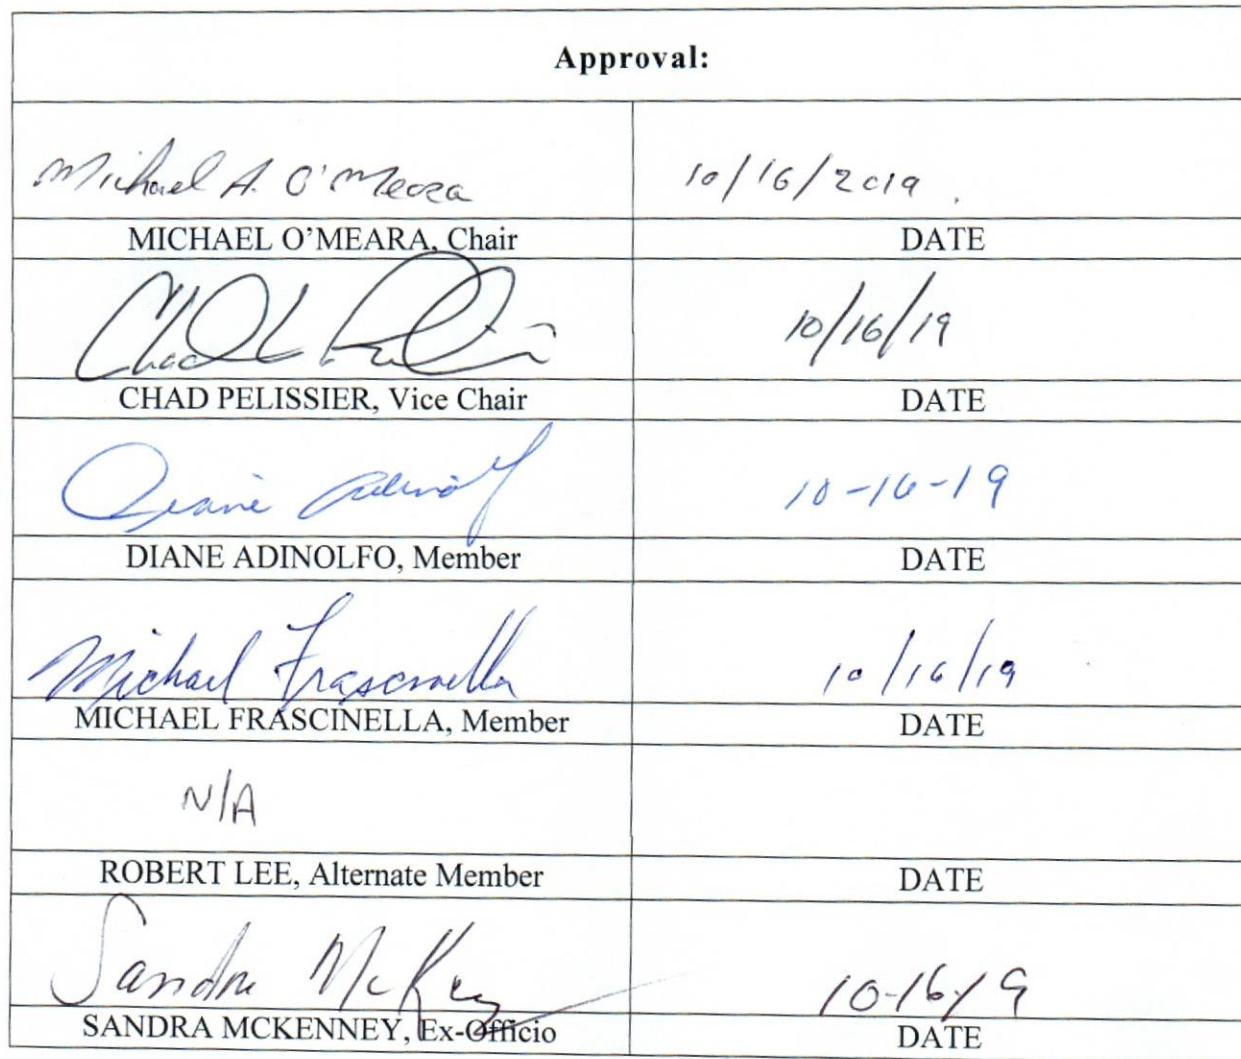 Approval:
Michael A. O'Meara 10/16/2019
MICHAEL O'MEARA, Chair DATE
Chad 10/16/19
CHAD PELISSIER, Vice Chair DATE
Diane Adinolf 10-16-19
DIANE ADINOLFO, Member DATE
Michael Frascinella 10/16/19
MICHAEL FRASCINELLA, Member DATE
N/A
ROBERT LEE, Alternate Member DATE
Sandra McKey 10-16-19
SANDRA MCKENNEY, Ex-Officio DATE